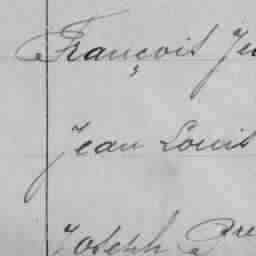 François Je
Jean Louis
Joseph